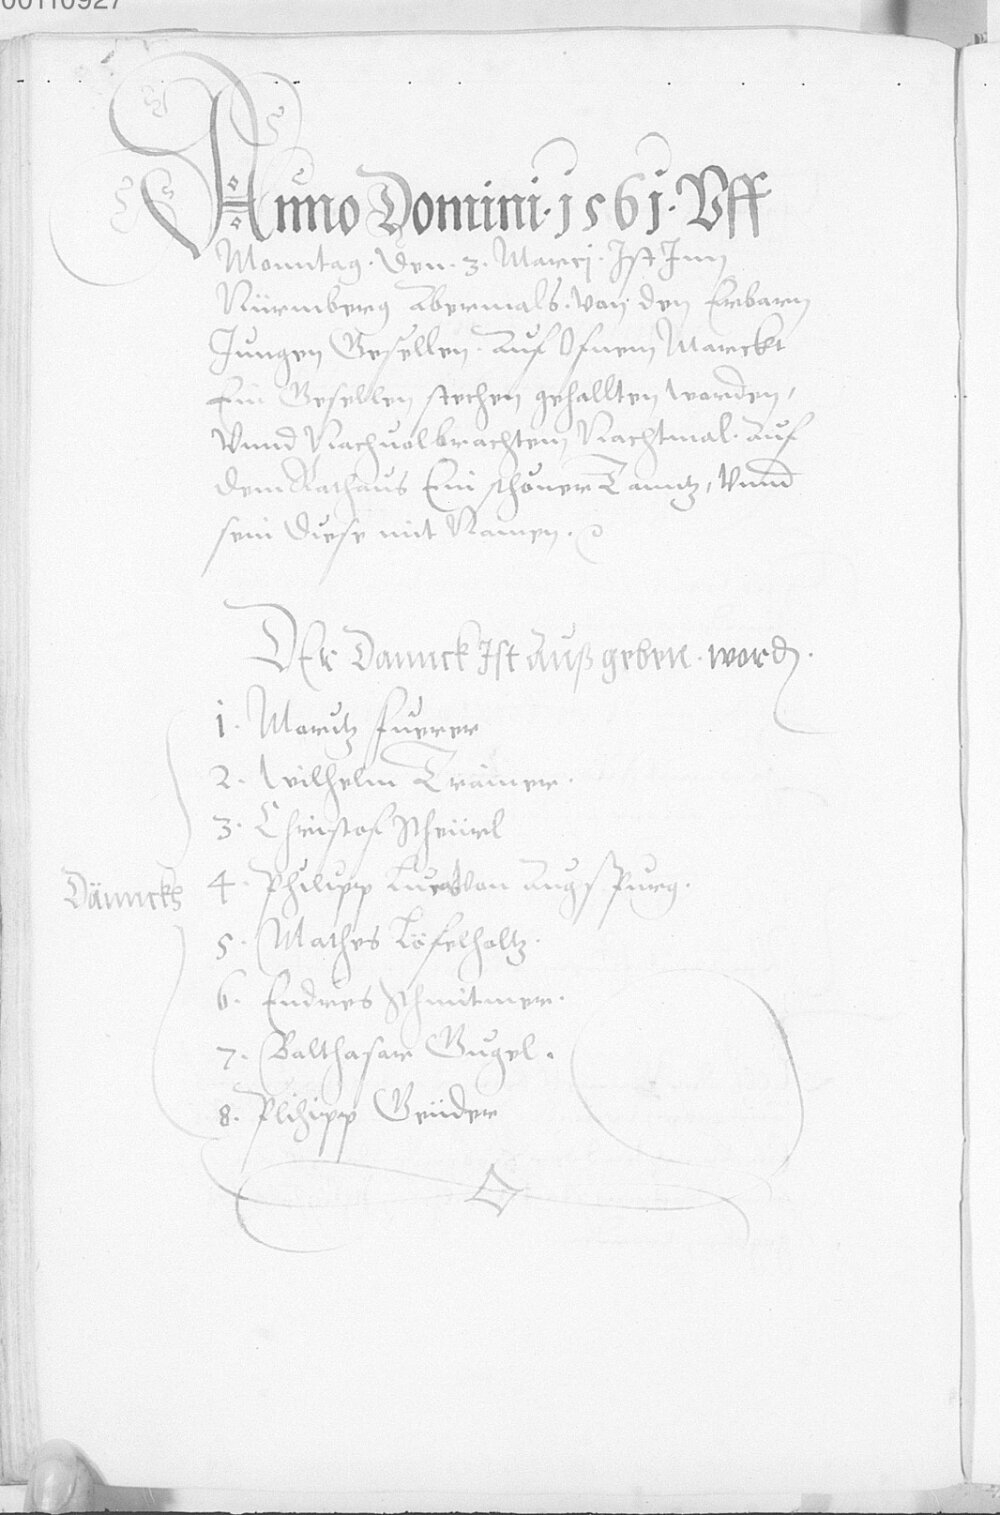 00110927
Anno Domini. 1561. Vff
Monntag. Den. 3. Marcij. Ist Inn
Nürmberg Abermals. Von den Erbarn
Jungen Gesellen. Auf Ofnem Marckt
Ein Gesellen stechen gehallten worden,
Vnnd Nachuolbrachtem Nachtmal. Auf
dem Rathaus Ein schöner Tanntz, Vnnd
sein diese mit Namen.
DEr Dannck Ist Auß geben. word.
1. Moritz fuerer
2. Wilhelm Tramer.
3. Christof Scheürl
Dänncks
4. Philipp Lucas Von Augspurg.
5. Mathes Löfelholtz.
6. Endries Schmitmer.
7. Balthasar Gugel.
8. Plihipp Geüder